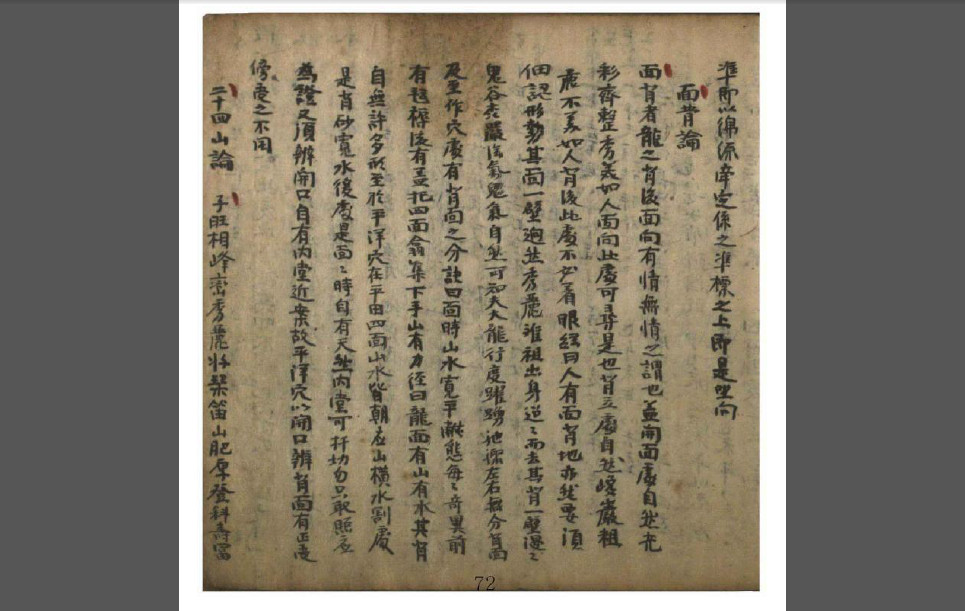 準即以綿源牽定係之準標之上即是坐向
面背論
面背者龍之背後面向有情無情之謂也蓋開面處自然光
彩齊整秀美如人面向此處可尋是也背立處自然峻巖粗
不美如人背後此處不必看眼經曰人有面背地亦然要須
個認形勢其面一壁 秀麗 祖出身 而去其背一壁
鬼谷 自然可知夫大龍行度躍踴 左右 分背面
及至作穴處有背面之分試四面時山水寬平 態每々奇異前
有毯褥後有蓋托四面翕集下手山有力徑曰龍面有山有水其背
自無許多形至於平洋穴在平田四面山水皆朝在山橫水割處
是背砂寬水後處是面々時自有天然內堂可 切勿只取照
為證又須辨開口自有內堂近案故平洋穴以開口辨背面有正
傍受之不用
二十四山論 子旺相峰巒秀麗 琴笛山肥厚登科壽富
72